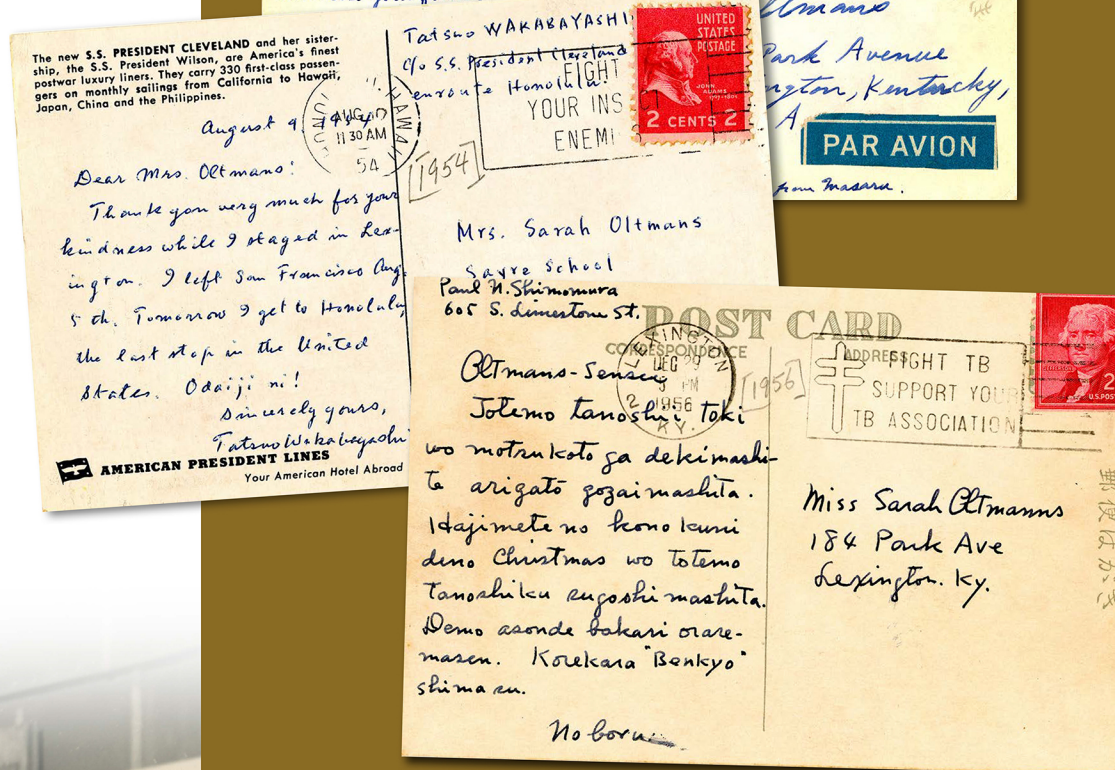 The new S.S. PRESIDENT CLEVELAND and her sister-
ship, the S.S. President Wilson, are America's finest
postwar luxury liners. They carry 330 first-class passen-
gers on monthly sailings from California to Hawaii,
Japan, China and the Philippines.
August 9
Dear Mrs. Oltmans:
Thank you very much for your
kindness while I stayed in Lex-
ington. I left San Francisco Aug.
5 th. Tomorrow I get to Honolulu,
the last stop in the United
States. Odaiji ni!
Sincerely yours,
Tatsuo Wakabayashi
AMERICAN PRESIDENT LINES
Your American Hotel Abroad
Tatsuo WAKABAYASHI
c/o S.S. President Cleveland
enroute Honolulu.
HAWAII
AUG
11 30 AM
54
[1954]
FIGHT
YOUR INS
ENEMI
UNITED
STATES
POSTAGE
JOHN
ADAMS
2 CENTS 2
Mrs. Sarah Oltmans
Sayre School
ltmans
Park Avenue
ngton, Kentucky,
A
PAR AVION
from Masaru.
Paul N. Shimomura
605 S. Limestone St.
POST CARD
CORRESPONDENCE
ADDRESS
LEXINGTON
DEC 29
PM
1956
KY.
[1956]
FIGHT TB
SUPPORT YOUR
TB ASSOCIATION
JEFFERSON
2
U.S. POST
Oltmans-Sensei
Totemo tanoshii toki
wo motsukoto ga dekimashi-
te arigatō gozaimashita.
Hajimete no kono kuni
deno Christmas wo totemo
tanoshiku sugoshimashita.
Demo asonde bakari orare-
masen. Korekara "Benkyo"
shimasu.
Noboru
Miss Sarah Oltmanns
184 Park Ave
Lexington. Ky.
郵便はがき